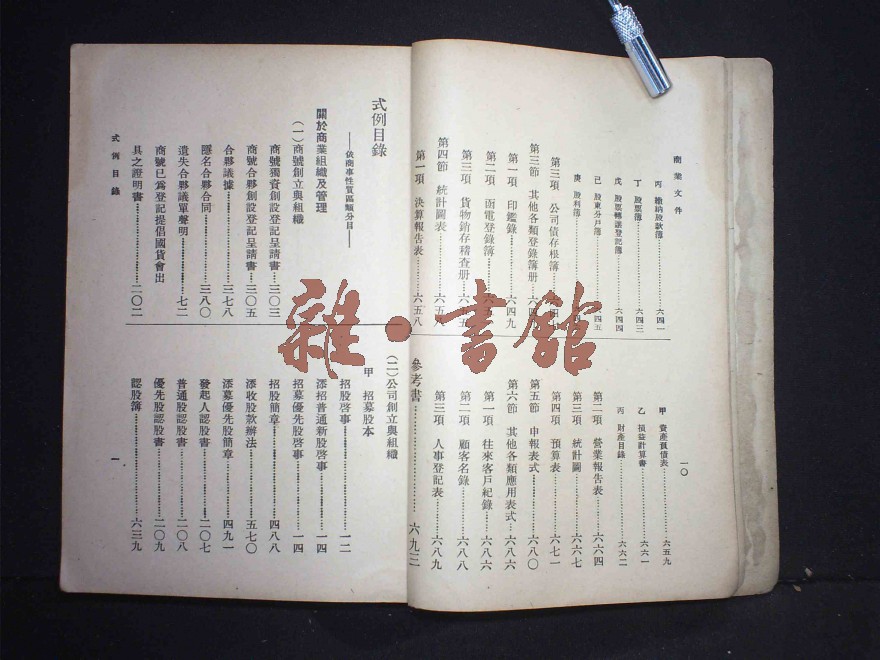 商業文件
丙 繳納股款簿……六四一
丁 股票簿……六四三
戊 股票轉讓登記簿……六四四
己 股東分戶簿
庚 股利簿
第三項 公司債存根簿
第三節 其他各類登錄簿册
第一項 印鑑錄……六四九
第二項 函電登錄簿
第三項 貨物銷存稽查册
第四節 統計圖表……六五八
第一項 決算報告表……六五八
甲 資產負債表……六五九
乙 損益計算書……六六一
丙 財產目錄……六六二
第二項 營業報告表……六六四
第三項 統計圖……六六七
第四項 預算表……六七一
第五節 申報表式……六八〇
第六節 其他各類應用表式……六八六
第一項 往來客戶紀錄……六八六
第二項 顧客名錄……六八八
第三項 人事登記表……六八九
參考書……六九三
一〇
式例目錄
——依商事性質區類分目——
關於商業組織及管理
（一）商號創立與組織
商號獨資創設登記呈請書……三〇三
商號合夥創設登記呈請書……三〇五
合夥議據……三七八
隱名合夥合同……三八〇
遺失合夥議單聲明……七二
商號已爲登記提倡國貨會出
具之證明書……二〇二
（二）公司創立與組織
甲 招募股本
招股啓事……一二
添招普通新股啓事……一四
招募優先股啓事……一四
招股簡章……四八八
添收股款辦法……五七〇
添募優先股簡章……四九一
發起人認股書……二〇七
普通股認股書……二〇八
優先股認股書……二〇九
認股簿……六三九
式例目錄
一
雜·書館